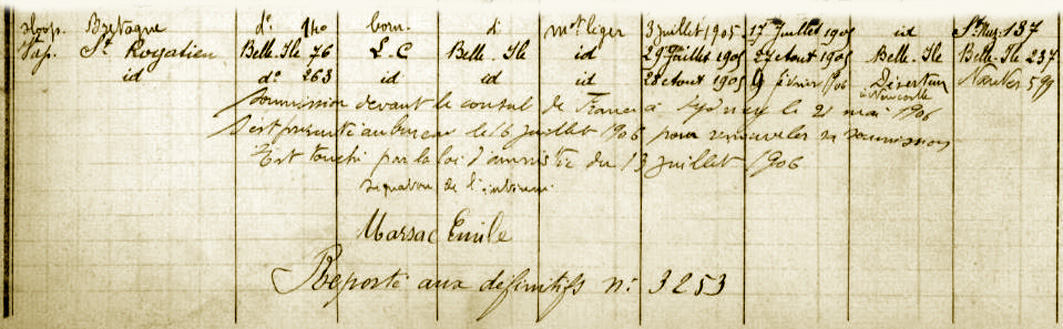 Sloop. Bretagne d° 140 born. d. mot léger 3 juillet 1905 17 Juillet 1905 id St Naz. 137
Vap. St Rogatien Belle-Ile 76 L.C Belle-Ile id 29 Juillet 1905 27 Août 1905 Belle-Ile Belle-Ile 237
id d° 263 id id id 28 Août 1905 9 février 1906 Déserteur à Newcastle Nantes 599
Soumission devant le consul de France à Sydney le 21 mai 1906
S'est présenté au bureau le 16 juillet 1906 pour renouveler sa soumission
Est touché par la loi d'amnistie du 13 juillet 1906
Signature de l'intéressé
Marsac Emile
Reporté aux définitifs n° 3253